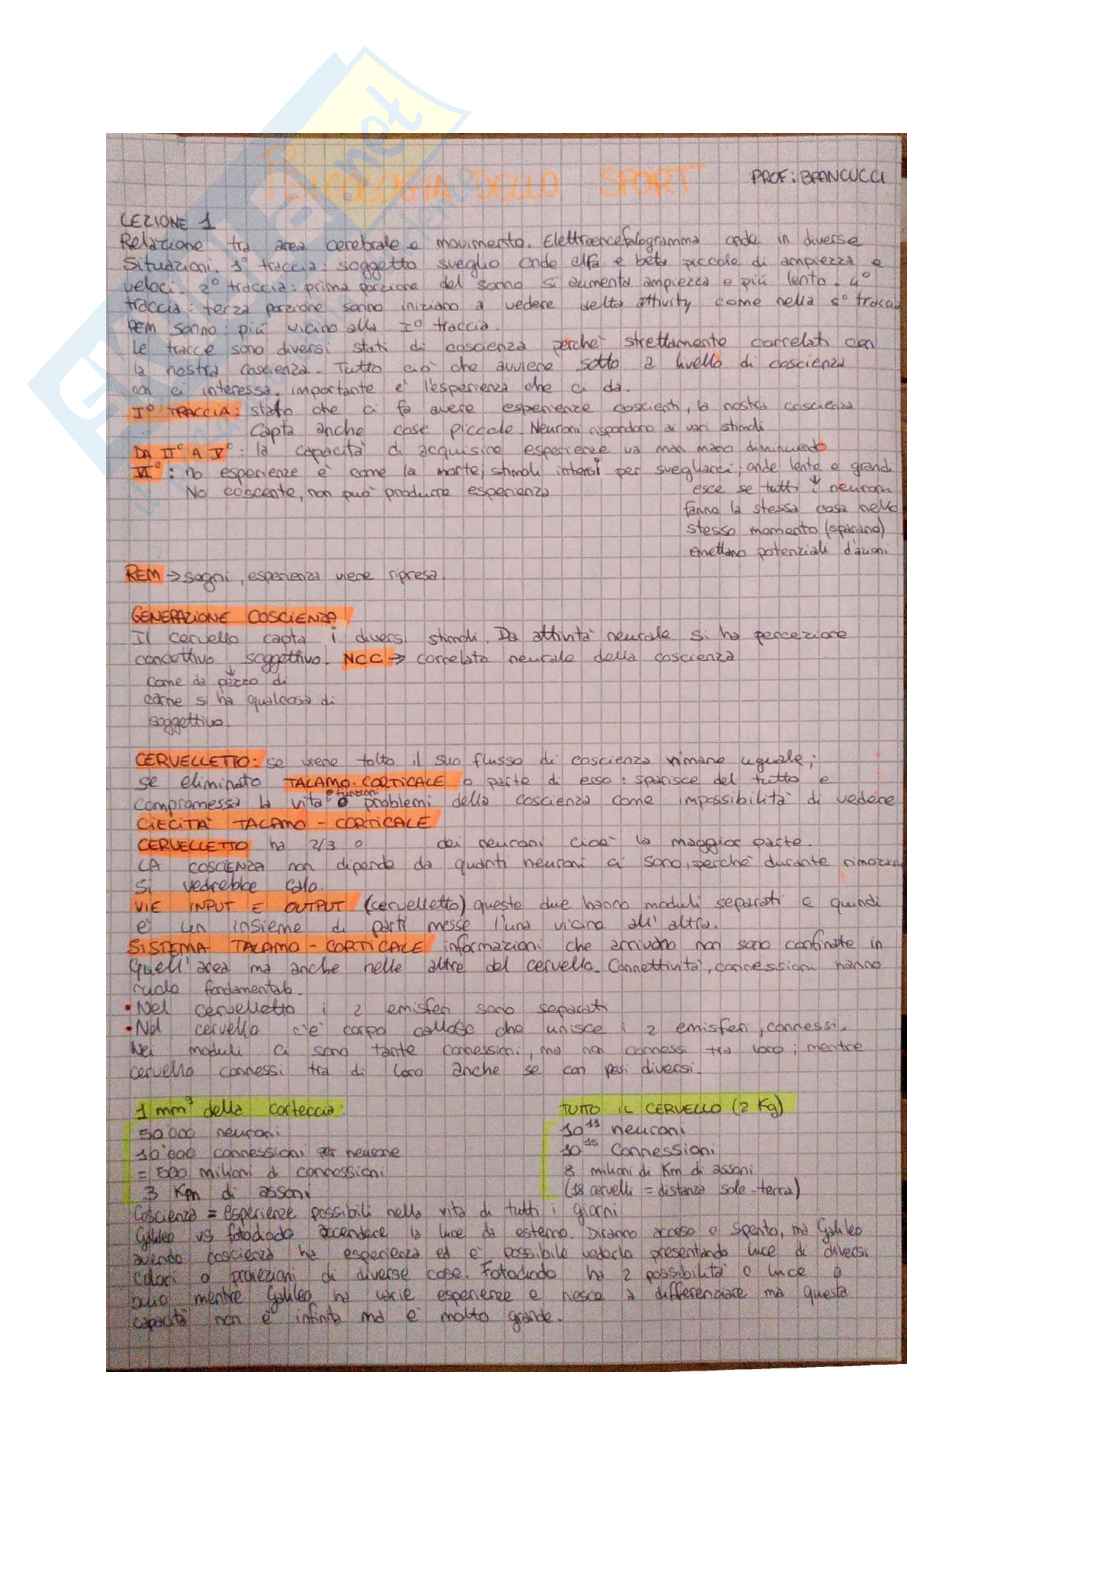 PSICOLOGIA DELLO SPORT
PROF: BRANCUCCI
LEZIONE 1
Relazione tra area cerebrale e movimento. Elettroencefalogramma onde in diverse
situazioni. 1° traccia: soggetto sveglio onde alfa e beta piccole di ampiezza e
veloci. 2° traccia: prima porzione del sonno si aumenta ampiezza e più lento. 4°
traccia: terza porzione sonno iniziano a vedere delta attivity come nella 6° traccia
REM sonno: più vicino alla I° traccia.
Le tracce sono diversi stati di coscienza perché strettamente correlati con
la nostra coscienza. Tutto ciò che avviene sotto a livello di coscienza
non ci interessa, importante è l'esperienza che ci da.
I° TRACCIA: stato che ci fa avere esperienze coscienti, la nostra coscienza
capta anche cose piccole. Neuroni rispondono ai vari stimoli
DA II° A V°: la capacità di acquisire esperienze va man mano diminuendo
VI°: no esperienze è come la morte, stimoli intensi per svegliarci, onde lente e grandi
No cosciente, non può produrre esperienza
esce se tutti i neuroni
fanno la stessa cosa nello
stesso momento (sparano)
emettano potenziali d'azioni
REM → sogni, esperienza viene ripresa.
GENERAZIONE COSCIENZA
Il cervello capta i diversi stimoli. Da attività neurale si ha percezione
soggettivo. NCC → correlato neurale della coscienza
come da pezzo di
carne si ha qualcosa di
soggettivo.
CERVELLETTO: se viene tolto il suo flusso di coscienza rimane uguale;
se eliminato TALAMO-CORTICALE o parte di esso: sparisce del tutto e
compromessa la vita e funzioni o problemi della coscienza come impossibilità di vedere
CIECITÀ TALAMO-CORTICALE
CERVELLETTO ha 2/3 o dei neuroni cioè la maggior parte.
LA COSCIENZA non dipende da quanti neuroni ci sono, perché durante rimozione
si vedrebbe calo.
VIE INPUT E OUTPUT (cervelletto) queste due hanno moduli separati e quindi
è un insieme di parti messe l'una vicino all'altra.
SISTEMA TALAMO-CORTICALE informazioni che arrivano non sono confinate in
quell'area ma anche nelle altre del cervello. Connettività, connessioni hanno
ruolo fondamentale.
• Nel cervelletto i 2 emisferi sono separati
• Nel cervello c'è corpo calloso che unisce i 2 emisferi, connessi.
Nei moduli ci sono tante connessioni, ma non connessi tra loro; mentre
cervello connessi tra di loro anche se con pesi diversi.
1 mm³ della corteccia:
50'000 neuroni
10'000 connessioni per neurone
= 500 milioni di connessioni
3 Km di assoni
TUTTO IL CERVELLO (2 Kg)
10¹¹ neuroni
10¹⁵ connessioni
8 milioni di Km di assoni
(18 cervelli = distanza sole-terra)
Coscienza = esperienze possibili nella vita di tutti i giorni
Galileo vs fotodiodo accendere la luce da esterno. Diranno acceso o spento, ma Galileo
avendo coscienza ha esperienza ed è possibile vederlo presentando luce di diversi
colori o proiezioni di diverse cose. Fotodiodo ha 2 possibilità o luce o
buio mentre Galileo ha varie esperienze e riesce a differenziare ma questa
capacità non è infinita ma è molto grande.